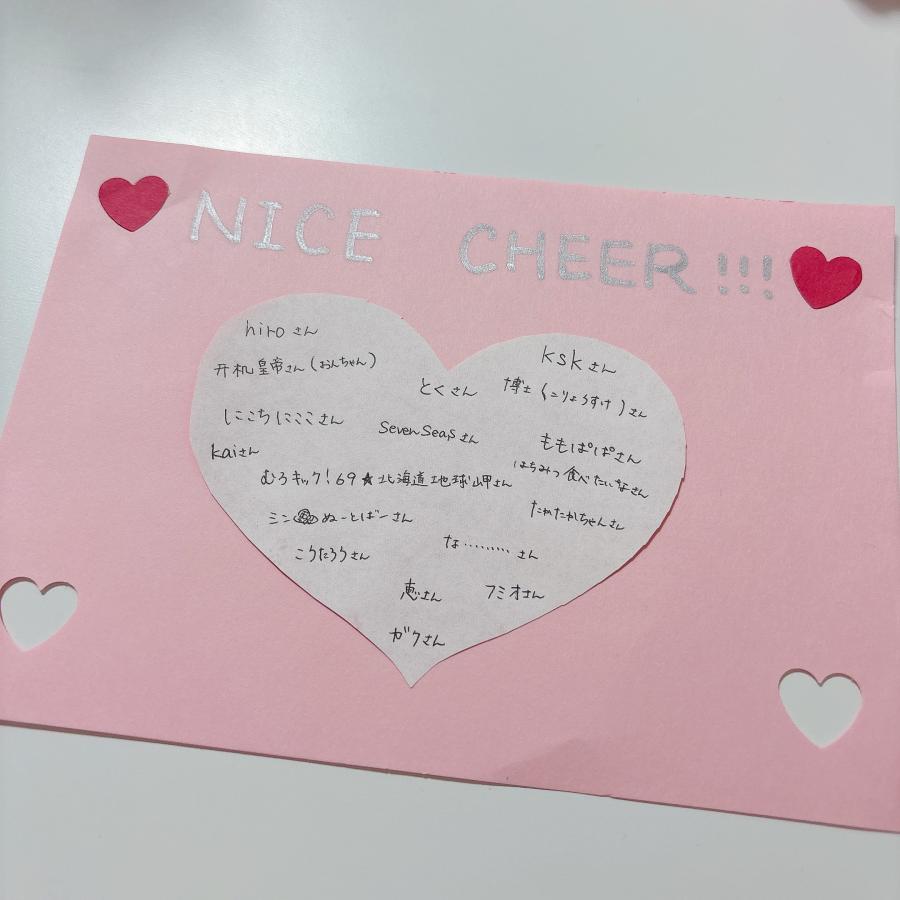 NICE CHEER!!!
hiroさん
kskさん
开机皇帝さん(おんちゃん)
とくさん
博士(こりょうすけ)さん
しここちにここさん
SevenSeasさん
ももぱぱさん
kaiさん
はちみつ食べたいなさん
むろキック!69★北海道地球岬さん
たかたかしちゃんさん
ミン ぬーとばーさん
な………さん
こうたろうさん
恵さん
フミオさん
ガクさん